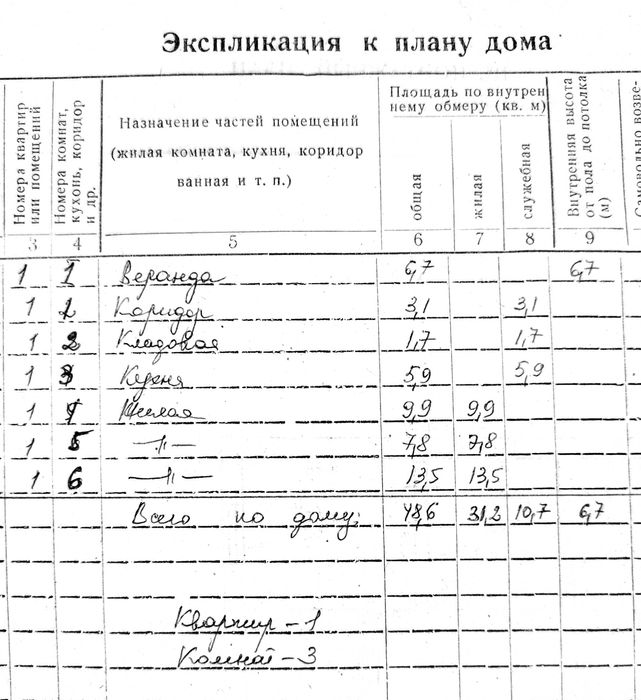 Экспликация к плану дома
Номера квартир или помещений
Номера комнат, кухонь, коридор и др.
Назначение частей помещений
(жилая комната, кухня, коридор
ванная и т. п.)
Площадь по внутрен
нему обмеру (кв. м)
общая
жилая
служебная
Внутренняя высота от пола до потолка (м)
Самовольно возве-
3 4 5 6 7 8 9
1 1 Веранда 6,7 6,7
1 Коридор 3,1 3,1
1 2 Кладовая 1,7 1,7
1 3 Кухня 5,9 5,9
1 4 Жилая 9,9 9,9
1 5 —〃— 7,8 7,8
1 6 —〃— 13,5 13,5
Всего по дому: 48,6 31,2 10,7 6,7
Квартир - 1
Комнат - 3